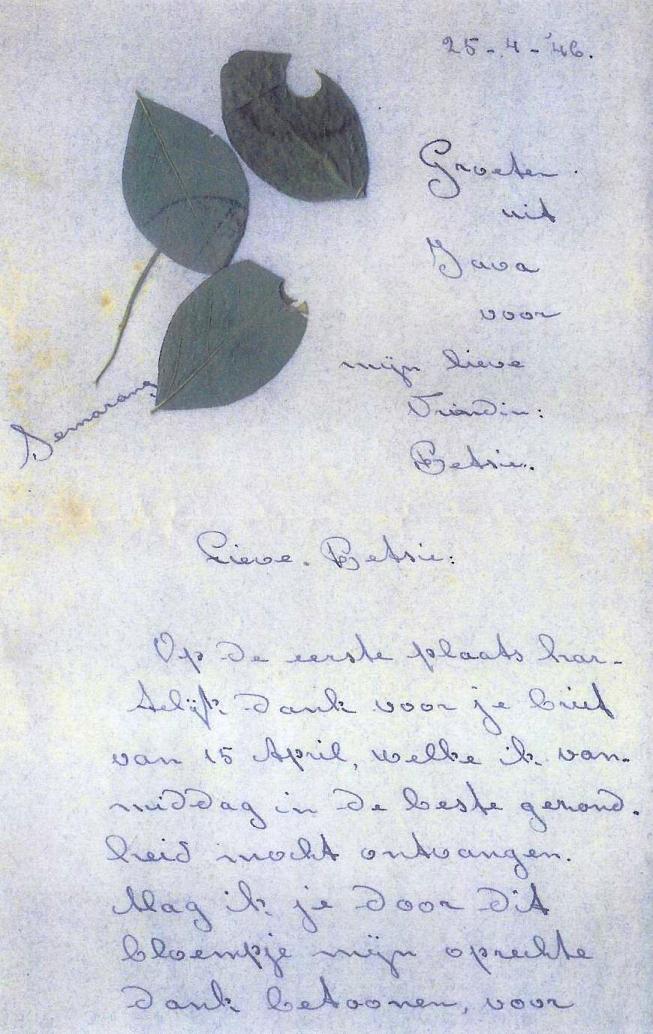 25-4-'46.
Groeten
uit
Java
voor
mijn lieve
Vriendin:
Betsie.
Semarang
Lieve. Betsie:
Op de eerste plaats har-
telijk dank voor je brief
van 15 April, welke ik van-
middag in de beste gezond-
heid mocht ontvangen.
Mag ik je door dit
bloempje mijn oprechte
dank betoonen, voor